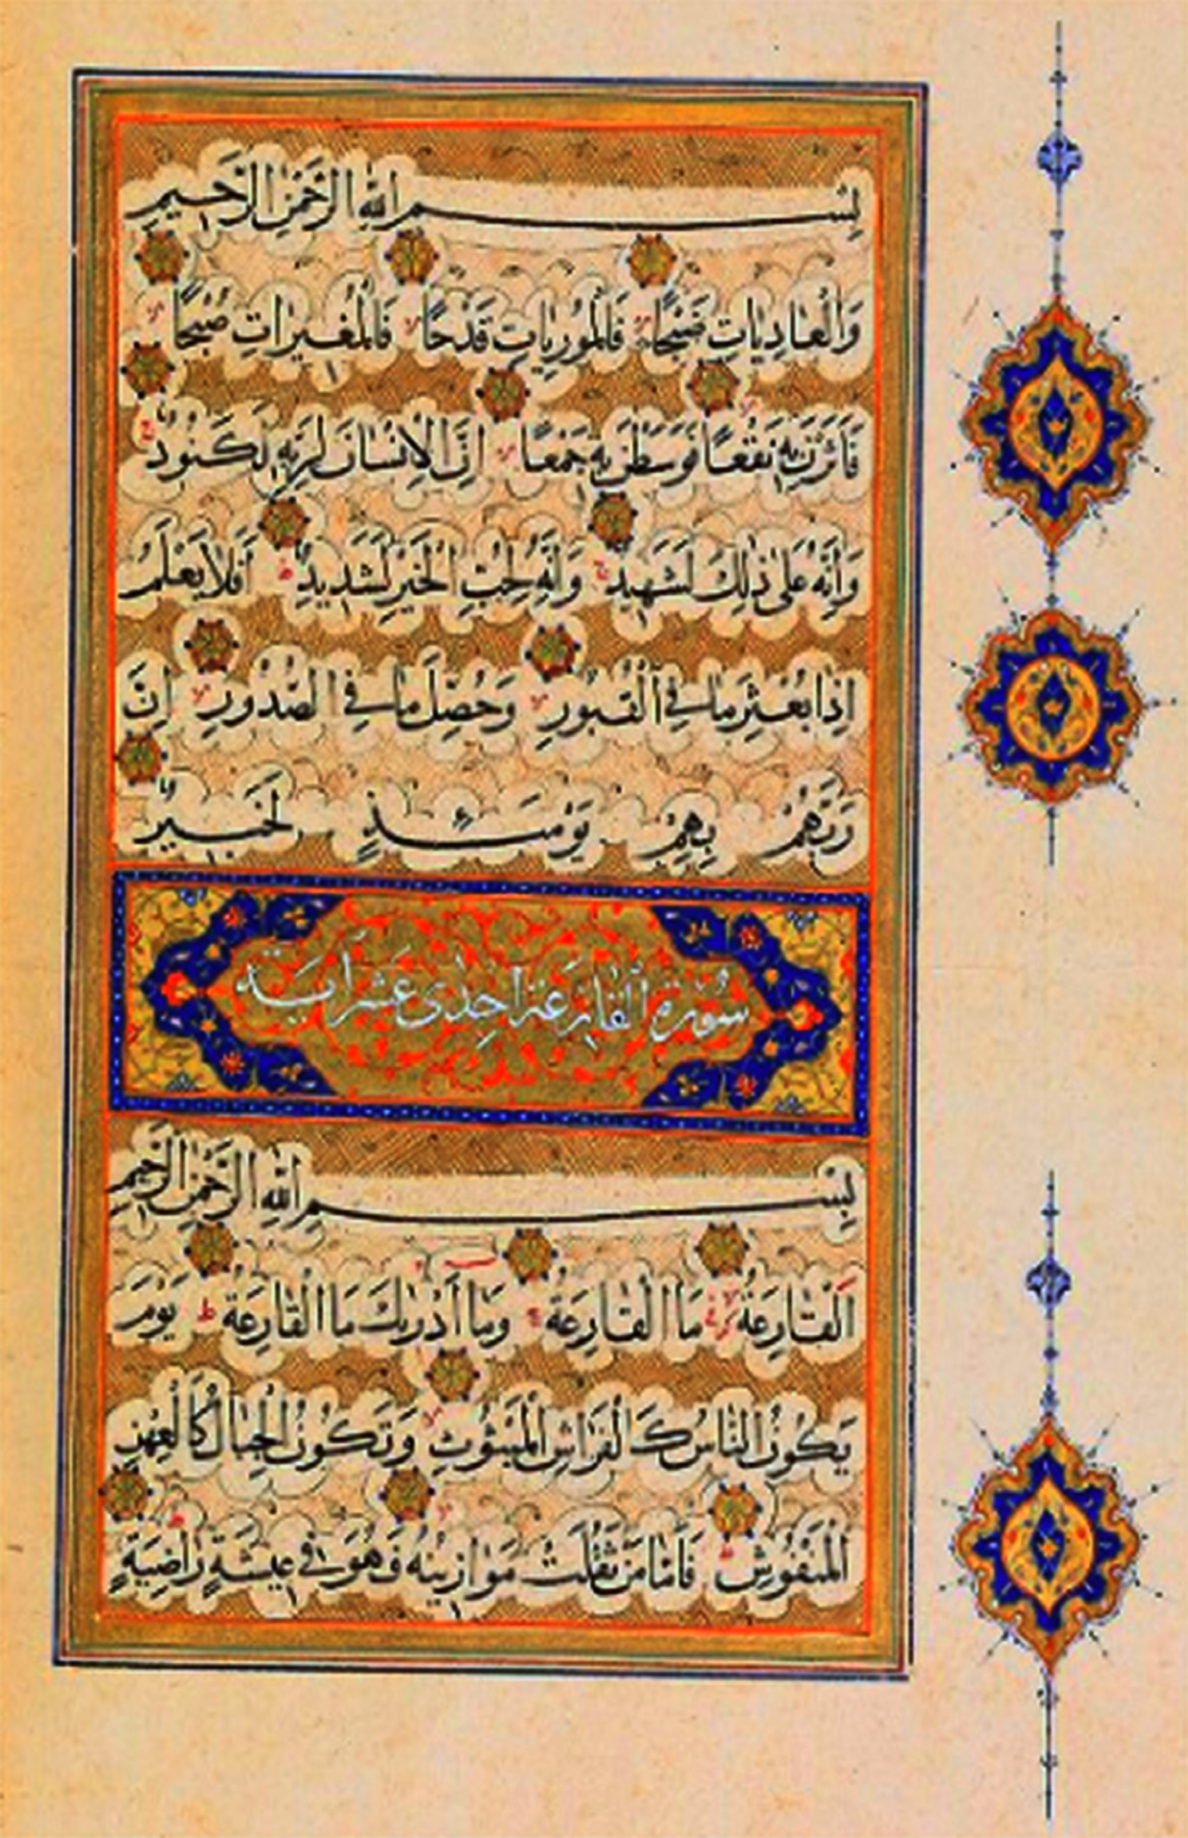 بِسْمِ اللهِ الرَّحْمٰنِ الرَّحِيمِ
وَالْعَادِيَاتِ ضَبْحًا فَالْمُورِيَاتِ قَدْحًا فَالْمُغِيرَاتِ صُبْحًا
فَاَثَرْنَ بِهِ نَقْعًا فَوَسَطْنَ بِهِ جَمْعًا اِنَّ الْاِنْسَانَ لِرَبِّهِ لَكَنُودٌ
وَاِنَّهُ عَلٰى ذٰلِكَ لَشَهِيدٌ وَاِنَّهُ لِحُبِّ الْخَيْرِ لَشَدِيدٌ اَفَلَا يَعْلَمُ
اِذَا بُعْثِرَ مَا فِي الْقُبُورِ وَحُصِّلَ مَا فِي الصُّدُورِ اِنَّ
رَبَّهُمْ بِهِمْ يَوْمَئِذٍ لَخَبِيرٌ
سُورَةُ الْقَارِعَةِ اِحْدٰى عَشَرَ اٰيَة
بِسْمِ اللهِ الرَّحْمٰنِ الرَّحِيمِ
اَلْقَارِعَةُ مَا الْقَارِعَةُ وَمَا اَدْرٰيكَ مَا الْقَارِعَةُ يَوْمَ
يَكُونُ النَّاسُ كَالْفَرَاشِ الْمَبْثُوثِ وَتَكُونُ الْجِبَالُ كَالْعِهْنِ
الْمَنْفُوشِ فَاَمَّا مَنْ ثَقُلَتْ مَوَازِينُهُ فَهُوَ فِي عِيشَةٍ رَاضِيَةٍ